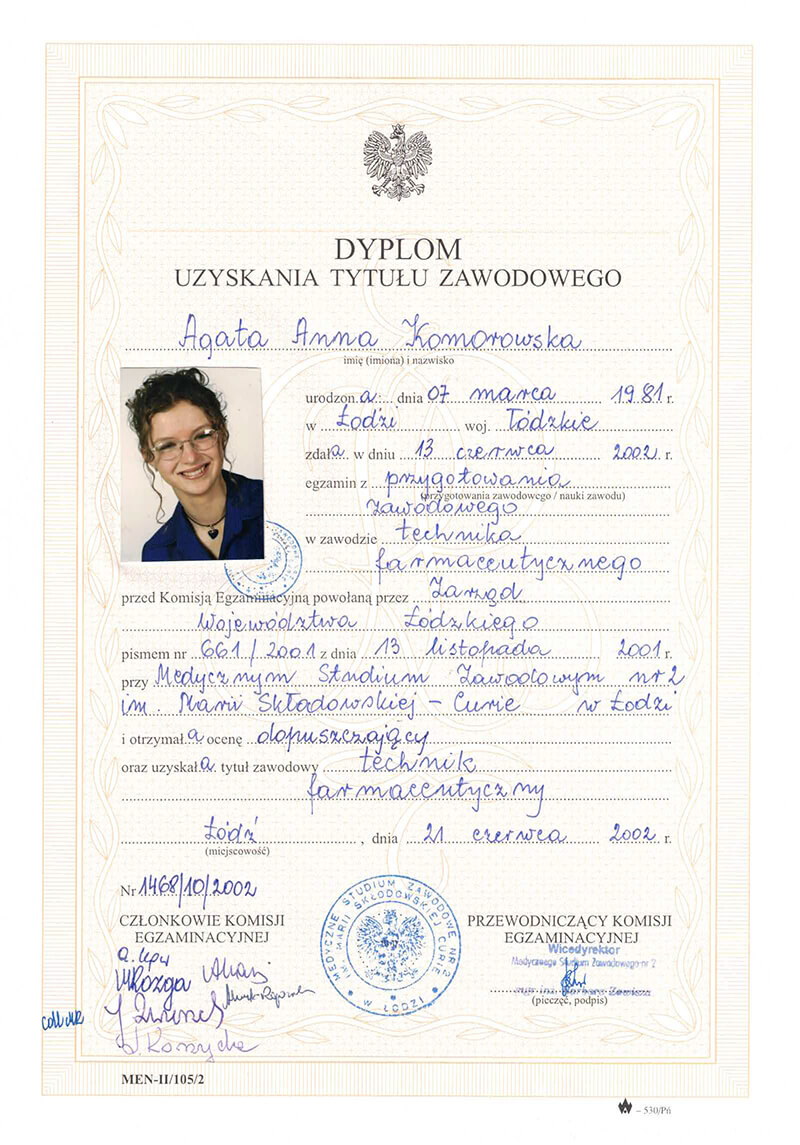 DYPLOM
UZYSKANIA TYTUŁU ZAWODOWEGO
Agata Anna Komorowska
imię (imiona) i nazwisko
urodzona dnia 07 marca 1981 r.
w Łodzi woj. Łódzkie
zdała w dniu 13 czerwca 2002 r.
egzamin z przygotowania
(przygotowania zawodowego / nauki zawodu)
zawodowego
w zawodzie technika
farmaceutycznego
przed Komisją Egzaminacyjną powołaną przez Zarząd
Województwa Łódzkiego
pismem nr 661/2001 z dnia 13 listopada 2001 r.
przy Medycznym Studium Zawodowym nr 2
im. Marii Składowskiej - Curie w Łodzi
i otrzymała ocenę dopuszczający
oraz uzyskała tytuł zawodowy technik
farmaceutyczny
Łódź, dnia 21 czerwca 2002 r.
(miejscowość)
Nr 1468/10/2002
CZŁONKOWIE KOMISJI
EGZAMINACYJNEJ
PRZEWODNICZĄCY KOMISJI
EGZAMINACYJNEJ
Wicedyrektor
Medycznego Studium Zawodowego nr 2
(pieczęć, podpis)
MEDYCZNE STUDIUM ZAWODOWE NR 2
MARII SKŁODOWSKIEJ CURIE
W ŁODZI
MEN-II/105/2
– 530/P6